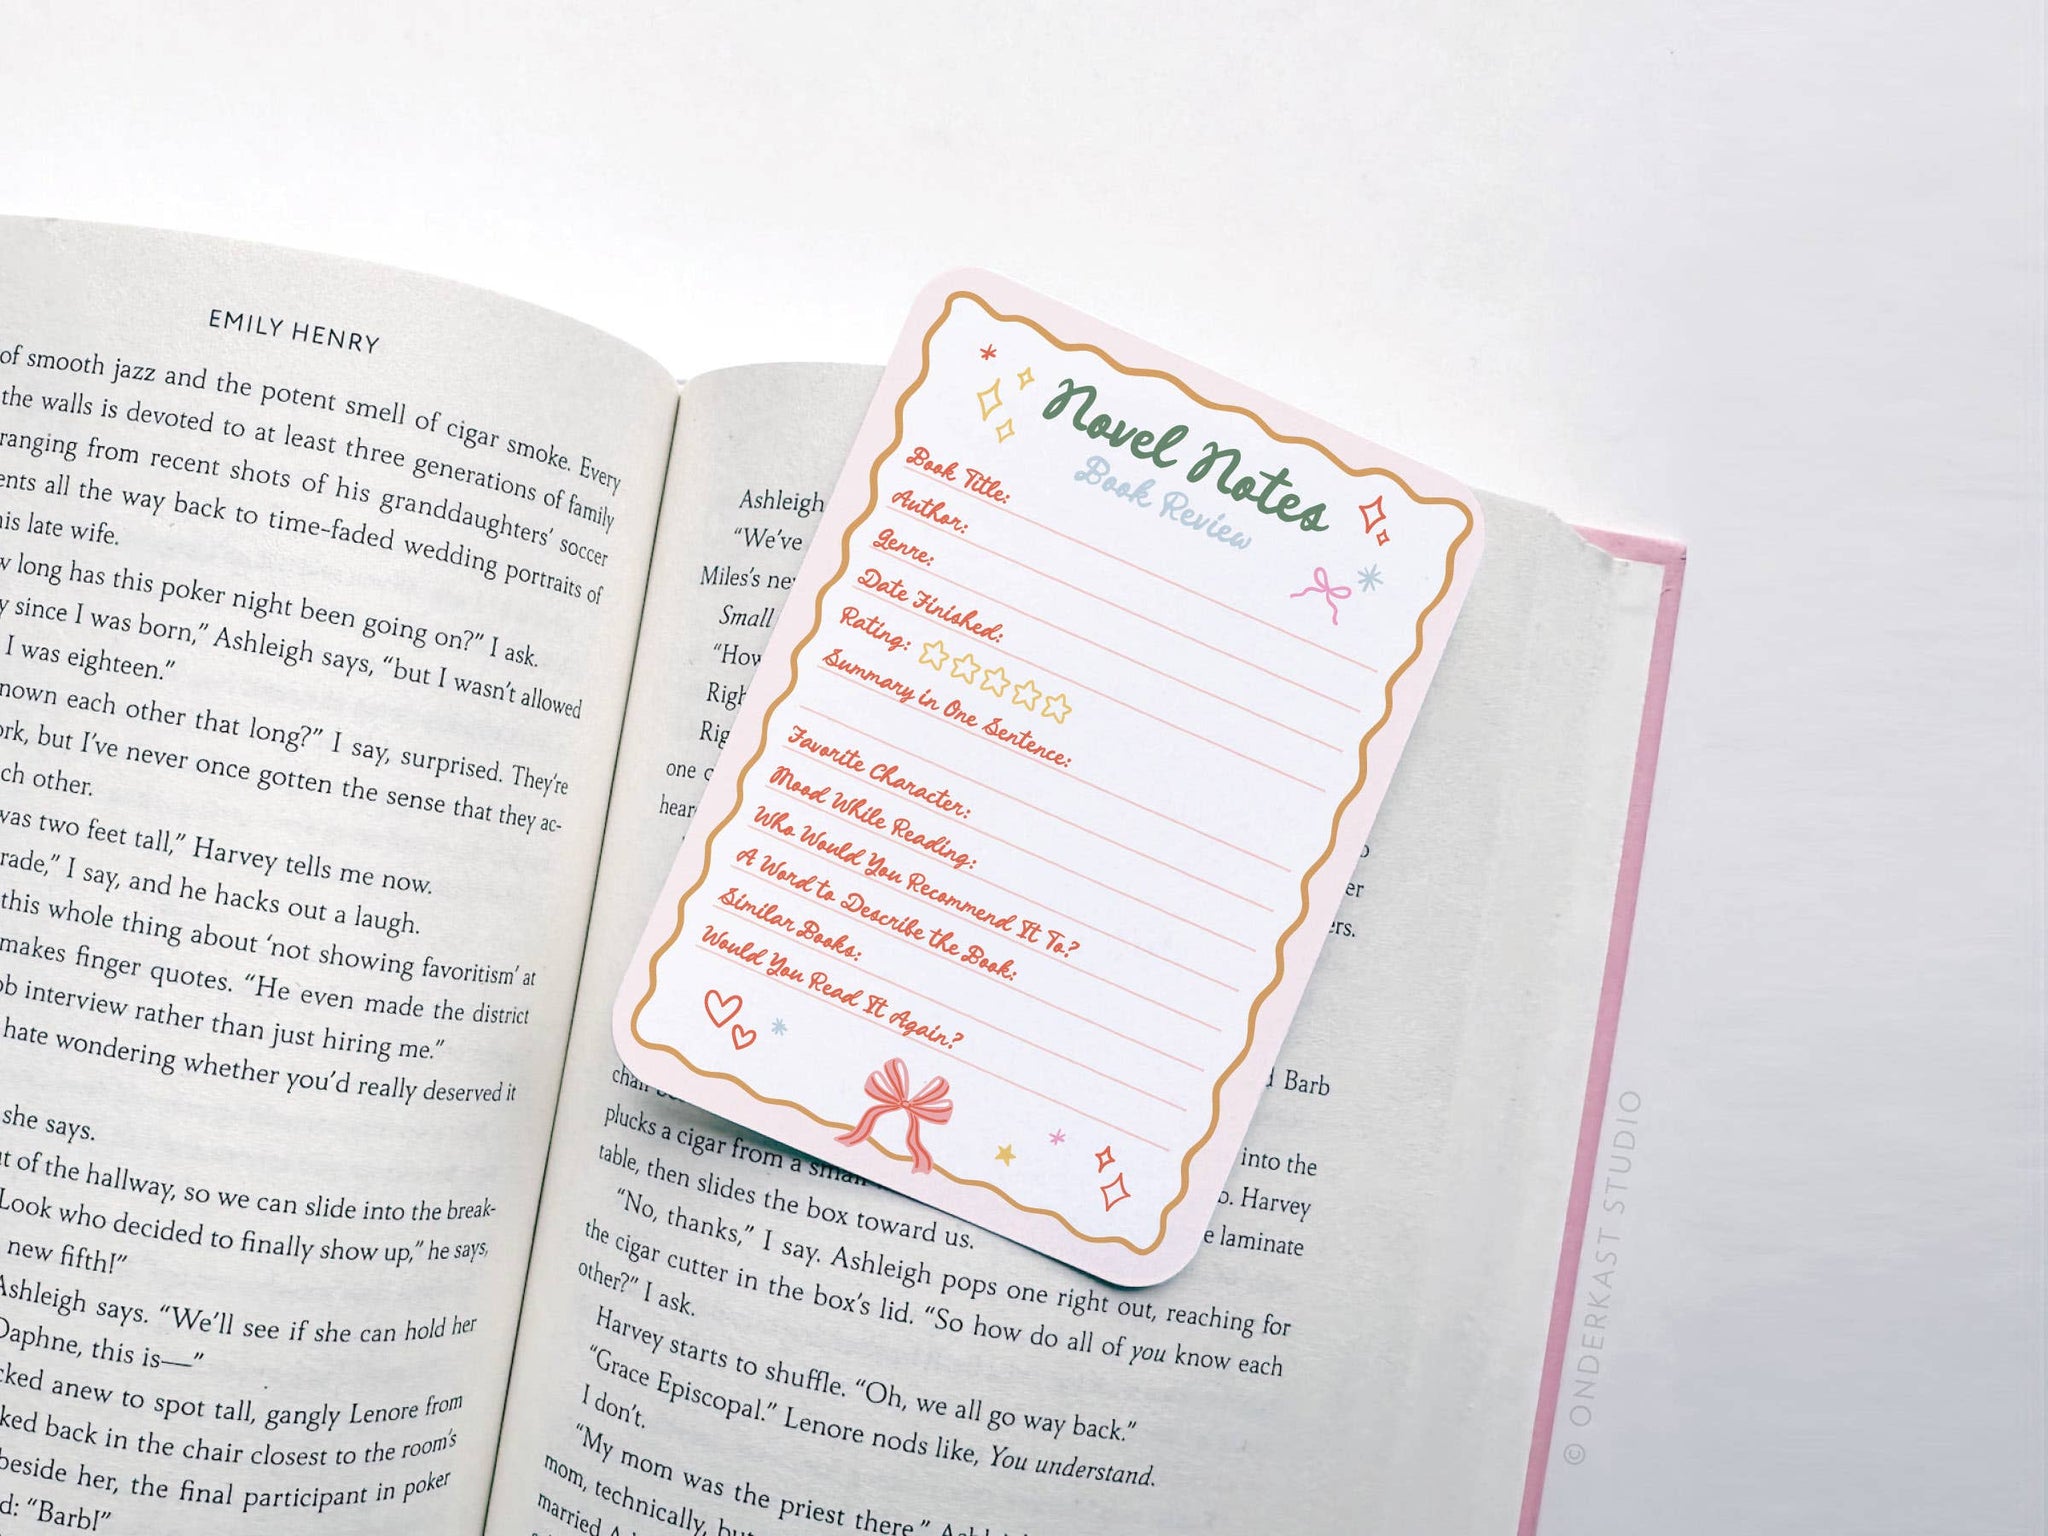 EMILY HENRY
of smooth jazz and the potent smell of cigar smoke. Every
the walls is devoted to at least three generations of family
ranging from recent shots of his granddaughters’ soccer
all the way back to time-faded wedding portraits of
his late wife.
long has this poker night been going on?” I ask.
since I was born,” Ashleigh says, “but I wasn’t allowed
I was eighteen.”
each other that long?” I say, surprised. They’re
but I’ve never once gotten the sense that they ac-
each other.
was two feet tall,” Harvey tells me now.
I say, and he hacks out a laugh.
this whole thing about ‘not showing favoritism’ at
makes finger quotes. “He even made the district
interview rather than just hiring me.”
hate wondering whether you’d really deserved it
she says.
of the hallway, so we can slide into the break-
Look who decided to finally show up,” he says,
new fifth!”
Ashleigh says. “We’ll see if she can hold her
Daphne, this is—”
anew to spot tall, gangly Lenore from
back in the chair closest to the room’s
beside her, the final participant in poker
“Barb!”
Ashleigh
“We’ve
Miles’s
Small
“How
one
Barb
plucks a cigar from a small into the
table, then slides the box toward us. Harvey
“No, thanks,” I say. Ashleigh pops one right out, reaching for laminate
the cigar cutter in the box’s lid. “So how do all of you know each
other?” I ask.
Harvey starts to shuffle. “Oh, we all go way back.”
“Grace Episcopal.” Lenore nods like, You understand.
I don’t.
“My mom was the priest there,”
mom, technically,
married
Novel Notes
Book Review
Book Title:
Author:
Genre:
Date Finished:
Rating:
Summary in One Sentence:
Favorite Character:
Mood While Reading:
Who Would You Recommend It To?
A Word to Describe the Book:
Similar Books:
Would You Read It Again?
© ONDERKAST STUDIO